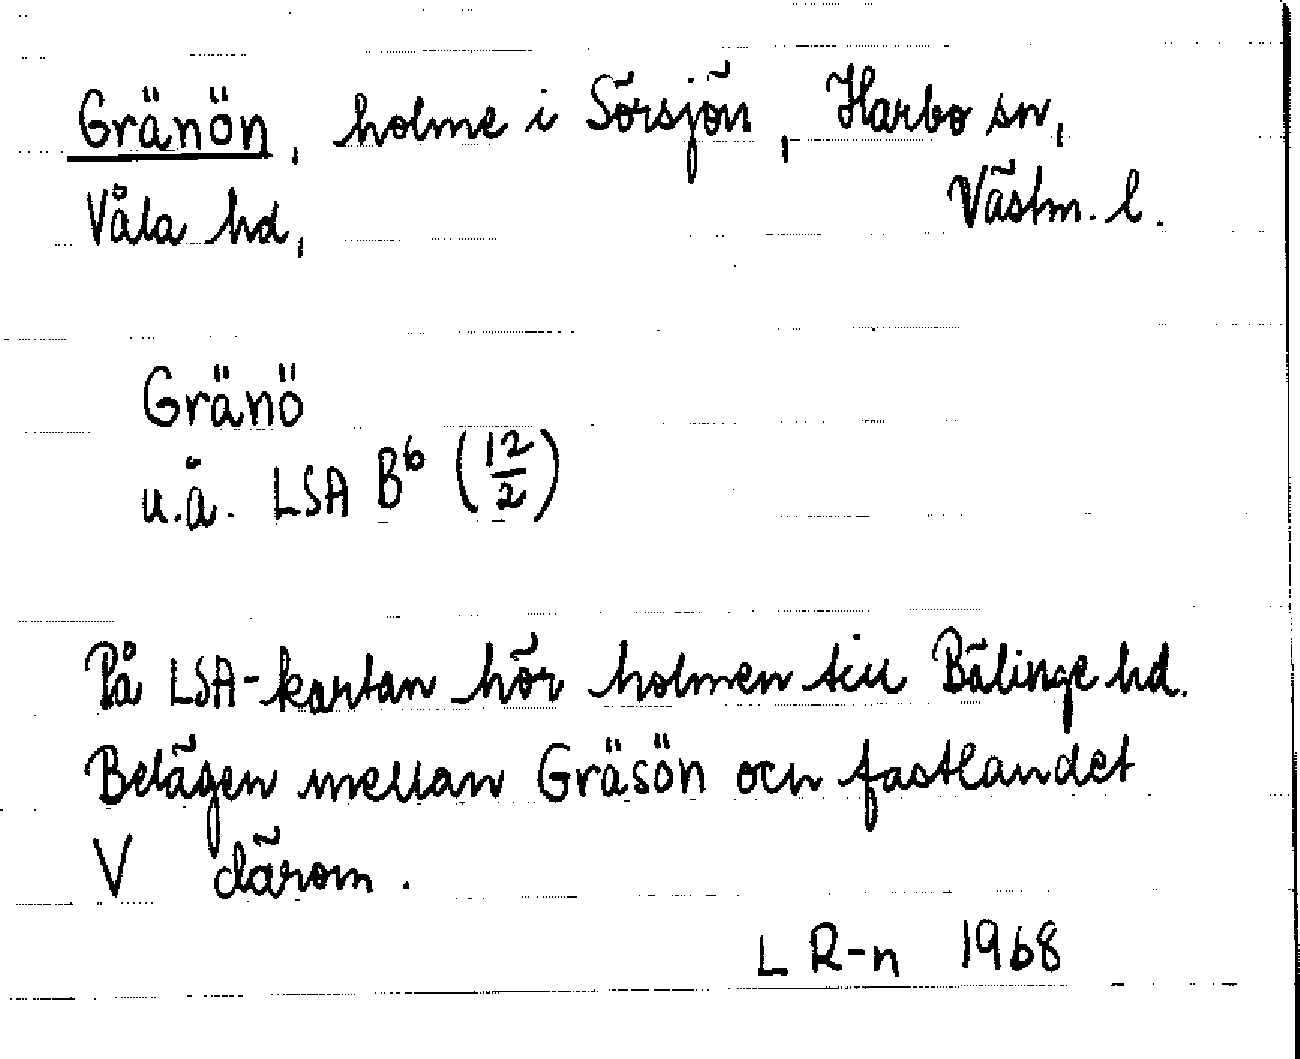 Gränön, holme i Sörsjön, Harbo sn,
Våla hd, Västm. l.
Gränö
u.å. LSA B6 (12/2)
På LSA-kartan hör holmen till Bälinge hd.
Belägen mellan Gräsön och fastlandet
V därom.
L R-n 1968